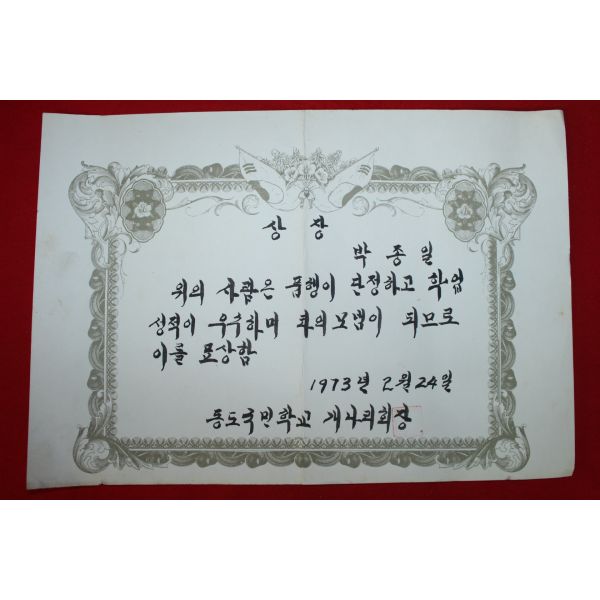 상 장
박 종 일
위의 사람은 품행이 단정하고 학업
성적이 우수하며 타의모범이 되므로
이를 표상함
1973년 2월 24일
동도국민학교 기사리회장